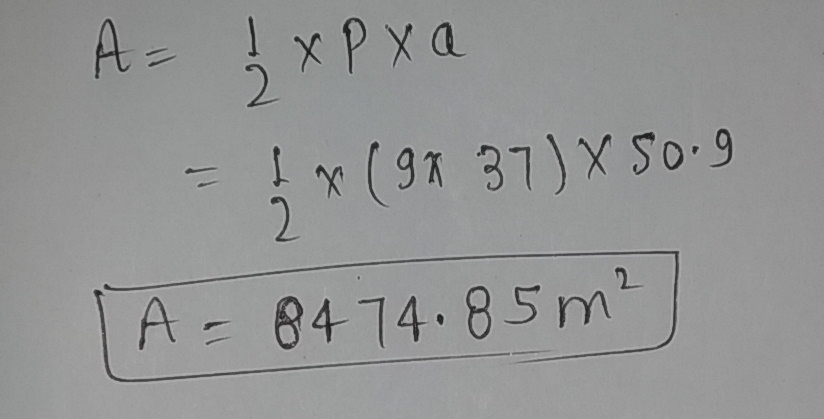 A = 1/2 × P × a
= 1/2 × (9 × 37) × 50.9
A = 8474.85 m²